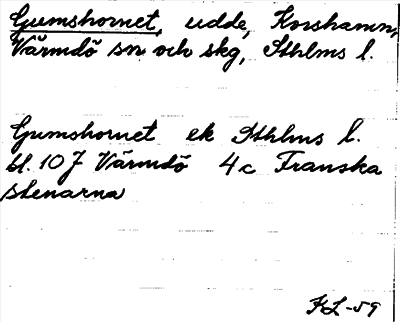 Gumshornet, udde, Korshamn,
Värmdö sn och skg, Sthlms l.
Gumshornet ek Sthlms l.
bl. 10 J Värmdö 4c Franska
stenarna
KL-59